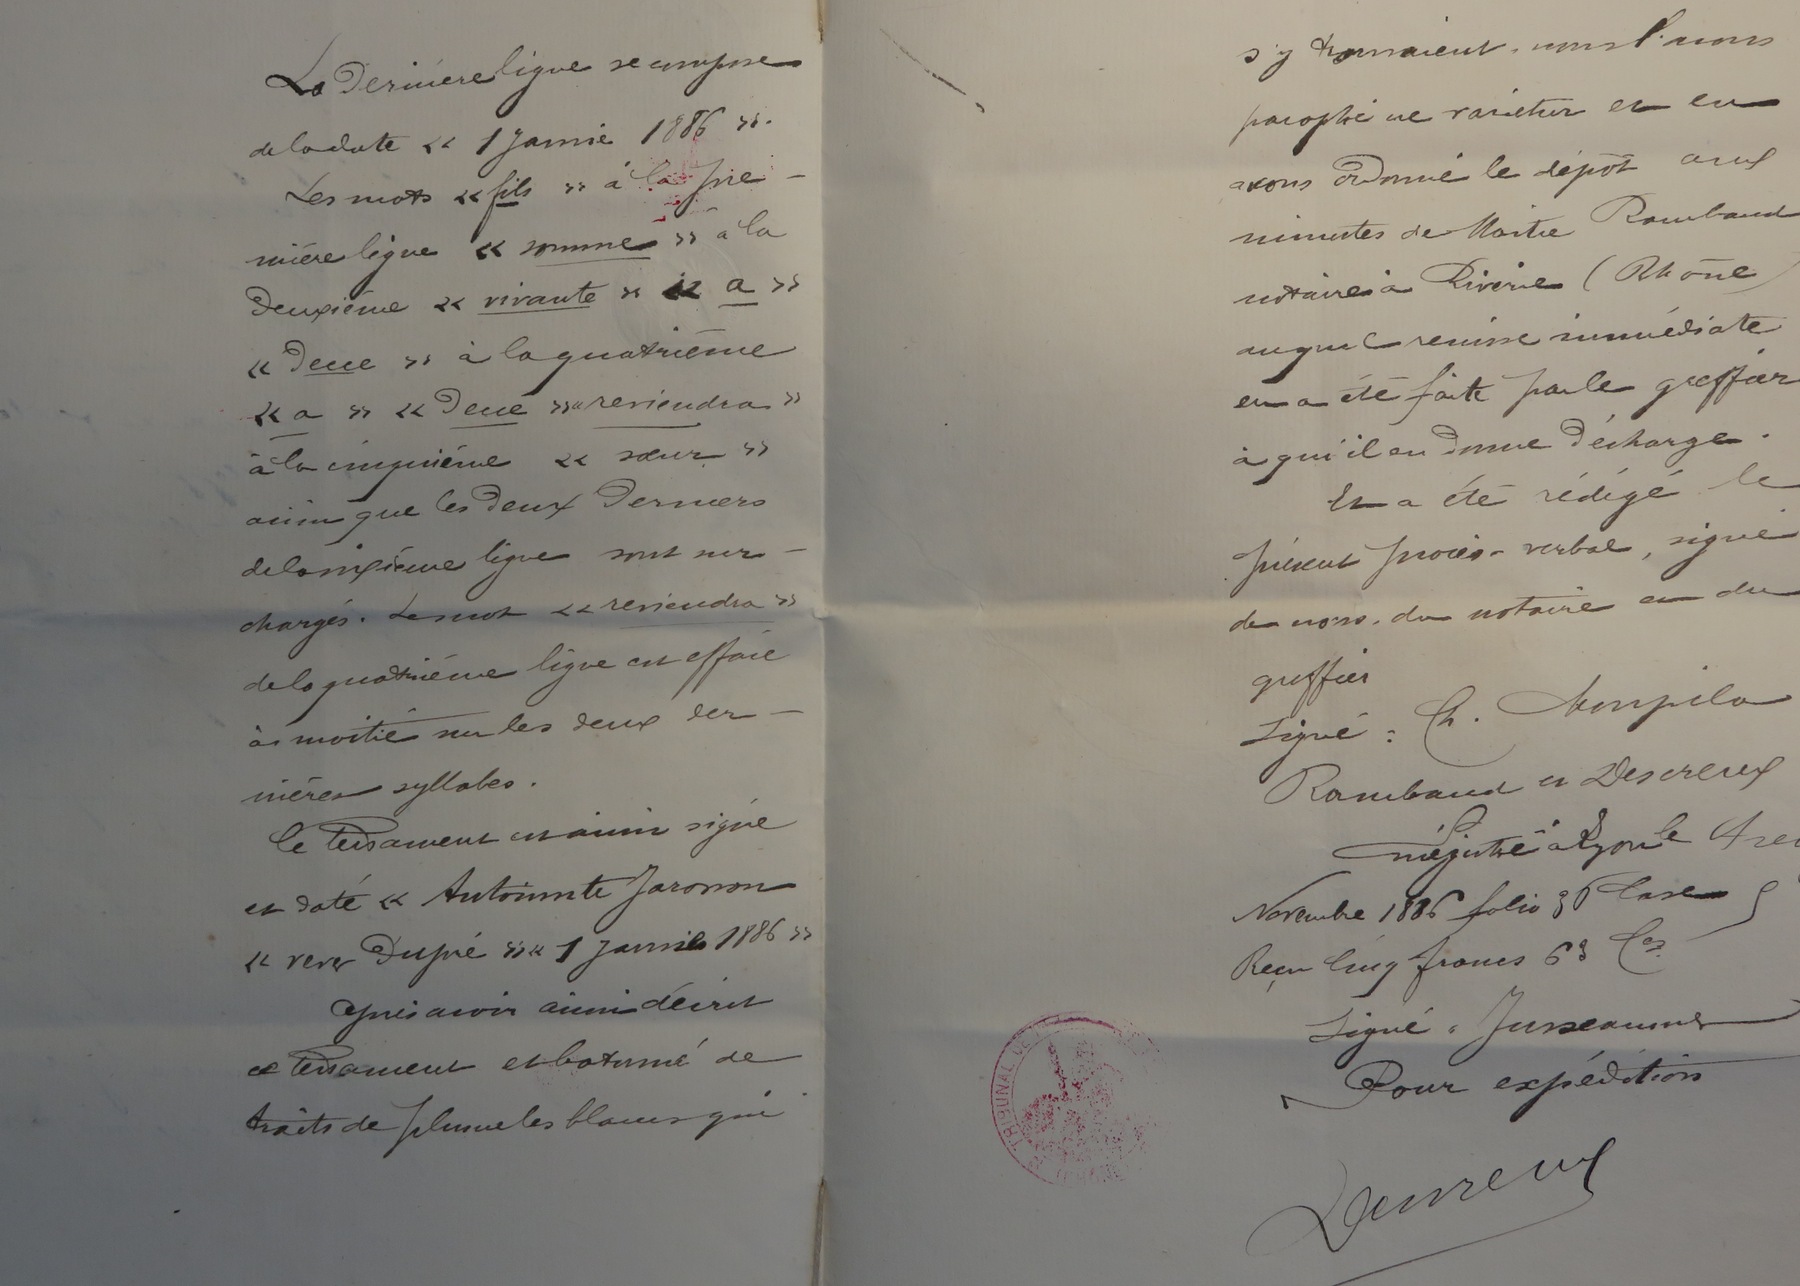 La dernière ligne se compose
de la date « 1 Janvié 1886 ».
Les mots « fils » à la pre -
mière ligne « somme » à la
deuxième « vivante » « a »
« deue » à la quatrième
« a » « deue » « reviendra »
à la cinquième « sœur »
ainsi que les deux derniers
de la sixième ligne sont sur -
chargés. Le mot « reviendra »
de la quatrième ligne est effacé
à moitié sur les deux der -
nières syllabes.
Ce testament est ainsi signé
et daté « Antoinnte
« veve Dupré » « 1 Janvié 1886 »
Après avoir ainsi décrit
ce testament et batonné de
traits de plume les blancs qui
s'y trouvaient, nous l'avons
paraphé ne varietur et en
avons ordonné le dépôt aux
minutes de Maître Rambaud
notaire à Riverie (Rhône)
auquel remise immédiate
en a été faite par le greffier
à qui il en donne décharge.
Et a été rédigé le
présent procès-verbal, signé
de nous, du notaire et du
greffier
Signé : Ch.
Rambaud et Descreux
Enregistré à Lyon le
Novembre 1886 folio 36 Case
Reçu cinq francs 63 Ces
Signé :
Pour expédition
TRIBUNAL DE
(RHÔNE)